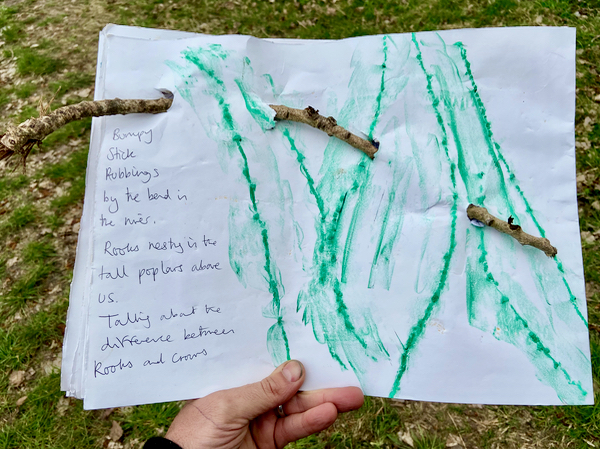 Bumpy
Stick
Rubbings
by the bend in
the river.
Rooks nesting in the
tall poplars above
us.
Talking about the
difference between
Rooks and Crows